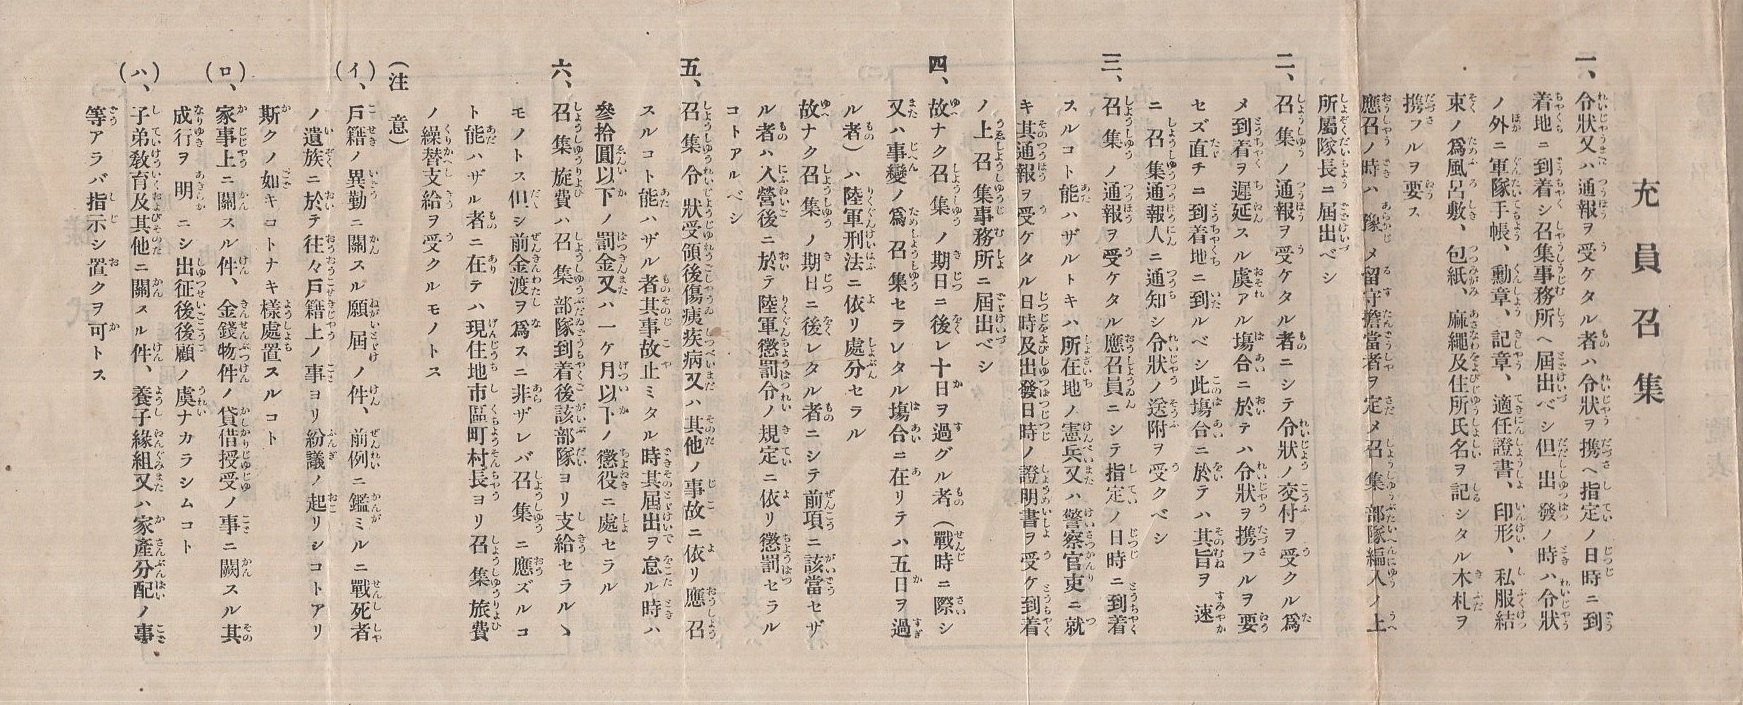 充員召集
一、令狀又ハ通報ヲ受ケタル者ハ令狀ヲ携ヘ指定ノ日時ニ到
着地ニ到着シ召集事務所ヘ屆出ベシ但出發ノ時ハ令狀
ノ外ニ軍隊手帳、勳章、記章、適任證書、印形、私服結
束ノ爲風呂敷、包紙、麻繩及住所氏名ヲ記シタル木札ヲ
携フルヲ要ス
應召ノ時ハ豫メ留守擔當者ヲ定メ召集部隊編入ノ上
所屬隊長ニ屆出ベシ
二、召集ノ通報ヲ受ケタル者ニシテ令狀ノ交付ヲ受クル爲
メ到着ヲ遲延スル虞アル塲合ニ於テハ令狀ヲ携フルヲ要
セズ直チニ到着地ニ到ルベシ此塲合ニ於テハ其旨ヲ速
ニ召集通報人ニ通知シ令狀ノ送附ヲ受クベシ
三、召集ノ通報ヲ受ケタル應召員ニシテ指定ノ日時ニ到着
スルコト能ハザルトキハ所在地ノ憲兵又ハ警察官吏ニ就
キ其通報ヲ受ケタル日時及出發日時ノ證明書ヲ受ケ到着
ノ上召集事務所ニ屆出ベシ
四、故ナク召集ノ期日ニ後レ十日ヲ過グル者(戰時ニ際シ
又ハ事變ノ爲召集セラレタル塲合ニ在リテハ五日ヲ過
ル者)ハ陸軍刑法ニ依リ處分セラル
故ナク召集ノ期日ニ後レタル者ニシテ前項ニ該當セザ
ル者ハ入營後ニ於テ陸軍懲罰令ノ規定ニ依リ懲罰セラル
コトアルベシ
五、召集令狀受領後傷痍疾病又ハ其他ノ事故ニ依リ應召
スルコト能ハザル者其事故止ミタル時其屆出ヲ怠ル時ハ
參拾圓以下ノ罰金又ハ一ケ月以下ノ懲役ニ處セラル
六、召集旅費ハ召集部隊到着後該部隊ヨリ支給セラルヽ
モノトス但シ前金渡ヲ爲スニ非ザレバ召集ニ應ズルコ
ト能ハザル者ニ在テハ現住地市區町村長ヨリ召集旅費
ノ繰替支給ヲ受クルモノトス
(注意)
(イ)、戶籍ノ異動ニ關スル願屆ノ件、前例ニ鑑ミルニ戰死者
ノ遺族ニ於テ往々戶籍上ノ事ヨリ紛議ノ起リシコトアリ
斯クノ如キコトナキ樣處置スルコト
(ロ)、家事上ニ關スル件、金錢物件ノ貸借授受ノ事ニ關スル其
成行ヲ明ニシ出征後後顧ノ虞ナカラシムコト
(ハ)、子弟敎育及其他ニ關スル件、養子緣組又ハ家產分配ノ事
等アラバ指示シ置クヲ可トス